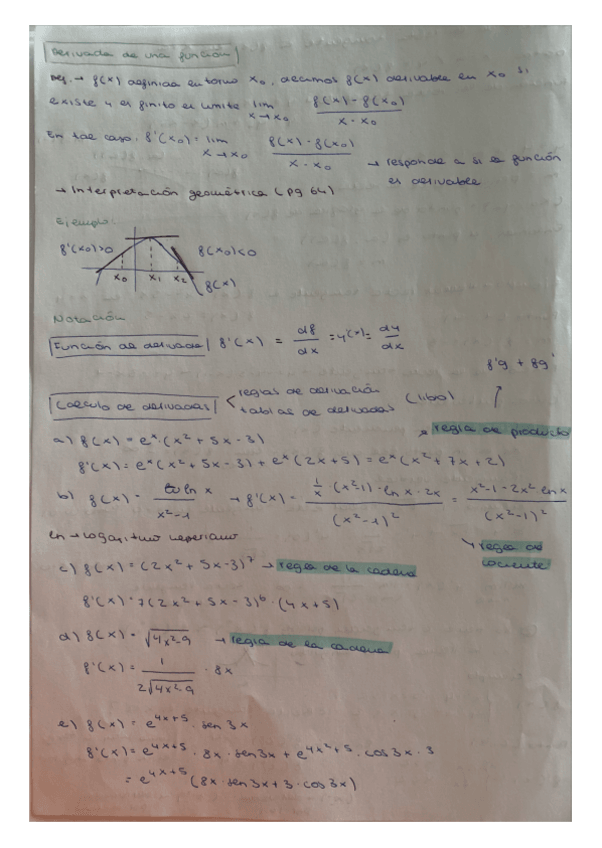 Derivada de una función
Def. → f(x) definida entorno x₀, decimos f(x) derivable en x₀ si
existe y es finito el límite lim x→x₀ (f(x) - f(x₀))/(x - x₀)
En tal caso, f'(x₀) = lim x→x₀ (f(x) - f(x₀))/(x - x₀) → responde a si la función
es derivable
→ Interpretación geométrica (pg 64)
Ejemplo:
f'(x₀)>0 f(x₀)<0
x₀ x₁ x₂ f(x)
Notación
Función de derivada f'(x) = df/dx = y'(x) = dy/dx
f'g + fg'
Cálculo de derivadas < reglas de derivación
tablas de derivadas (libro)
→ regla de producto
a) f(x) = eˣ·(x² + 5x - 3)
f'(x) = eˣ(x² + 5x - 3) + eˣ(2x + 5) = eˣ(x² + 7x + 2)
b) f(x) = ln x/(x² - 1) → f'(x) = (1/x · (x²-1) - ln x · 2x)/(x² - 1)² = (x² - 1 - 2x² ln x)/(x² - 1)²
ln → logaritmo neperiano
→ regla de
cociente
c) f(x) = (2x² + 5x - 3)⁷ → regla de la cadena
f'(x) = 7(2x² + 5x - 3)⁶ · (4x + 5)
d) f(x) = √(4x² - 9) → regla de la cadena
f'(x) = 1/(2√(4x² - 9)) · 8x
e) f(x) = e^(4x + 5) · sen 3x
f'(x) = e^(4x + 5) · 8x · sen 3x + e^(4x² + 5) · cos 3x · 3
= e^(4x + 5) (8x · sen 3x + 3 · cos 3x)